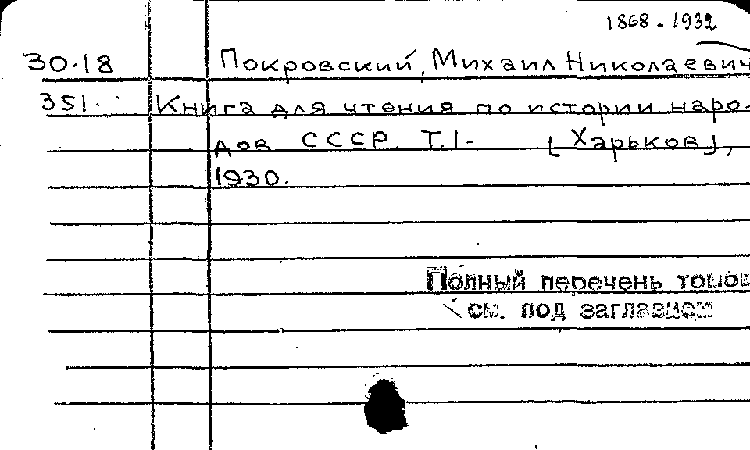 1868-1932
30-18 Покровский, Михаил Николаевич
351. Книга для чтения по истории наро-
дов СССР. Т.1. [Харьков],
1930.
Полный перечень томов
см. под заглавием